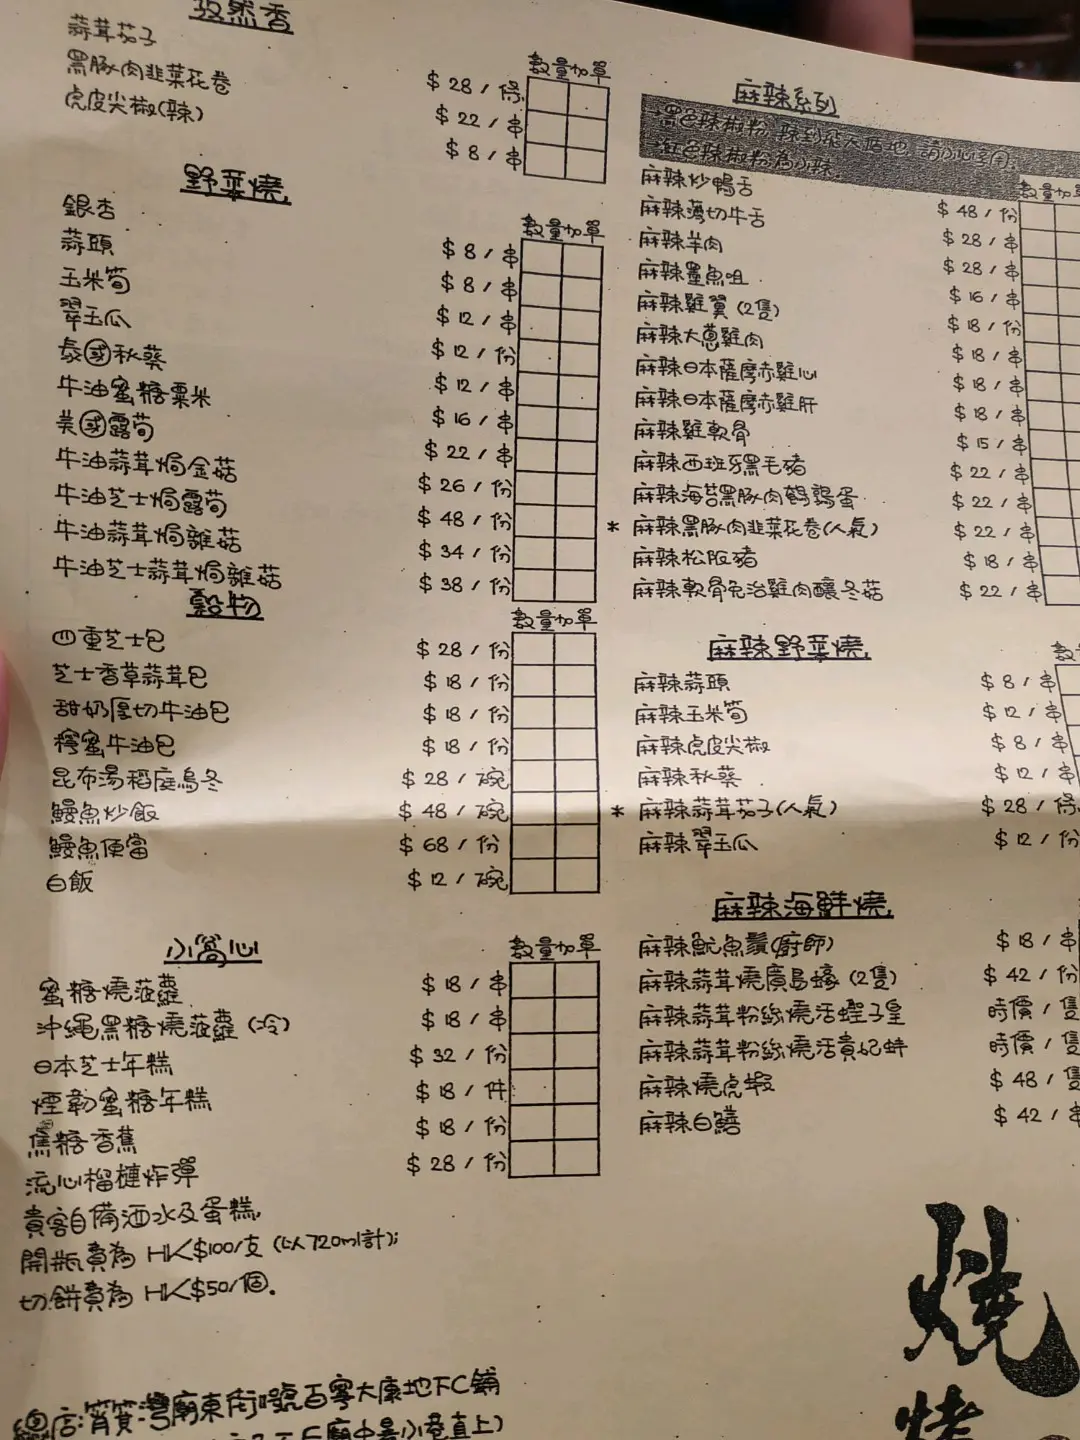 孜然香
數量加單
蒜茸茄子 $28/條
黑豚肉韮菜花卷 $22/串
虎皮尖椒(辣) $8/串
野菜燒
數量加單
銀杏 $8/串
蒜頭 $8/串
玉米筍 $12/串
翠玉瓜 $12/份
泰國秋葵 $12/串
牛油蜜糖粟米 $16/串
美國露荀 $22/串
牛油蒜茸焗金菇 $26/份
牛油芝士焗露荀 $48/份
牛油蒜茸焗雜菇 $34/份
牛油芝士蒜茸焗雜菇 $38/份
穀物
數量加單
四重芝士包 $28/份
芝士香草蒜茸包 $18/份
甜奶厚切牛油包 $18/份
檸蜜牛油包 $18/份
昆布湯稻庭烏冬 $28/碗
鰻魚炒飯 $48/碗
鰻魚便當 $68/份
白飯 $12/碗
小窩心
數量加單
蜜糖燒菠蘿 $18/串
沖繩黑糖燒菠蘿(冷) $18/串
日本芝士年糕 $32/份
煙韌蜜糖年糕 $18/件
焦糖香蕉 $18/份
流心榴槤炸彈 $28/份
貴客自備酒水及蛋糕,
開瓶費為 HK$100/支 (以720ml計);
切餅費為 HK$50/個。
麻辣系列
黑色辣椒粉 辣到飛天遁地 請小心享用;
紅色辣椒粉為小辣.
數量加單
麻辣炒鴨舌 $48/份
麻辣薄切牛舌 $28/串
麻辣羊肉 $28/串
麻辣墨魚咀 $16/串
麻辣雞翼(2隻) $18/份
麻辣大蔥雞肉 $18/串
麻辣日本薩摩赤雞心 $18/串
麻辣日本薩摩赤雞肝 $18/串
麻辣雞軟骨 $15/串
麻辣西班牙黑毛豬 $22/串
麻辣海苔黑豚肉鵪鶉蛋 $22/串
* 麻辣黑豚肉韮菜花卷(人氣) $22/串
麻辣松阪豬 $18/串
麻辣軟骨免治雞肉釀冬菇 $22/串
麻辣野菜燒
數
麻辣蒜頭 $8/串
麻辣玉米筍 $12/串
麻辣虎皮尖椒 $8/串
麻辣秋葵 $12/串
* 麻辣蒜茸茄子(人氣) $28/條
麻辣翠玉瓜 $12/份
麻辣海鮮燒
麻辣魷魚鬚(廚師) $18/串
麻辣蒜茸燒廣島蠔(2隻) $42/份
麻辣蒜茸粉絲燒活蟶子皇 時價/隻
麻辣蒜茸粉絲燒活貴妃蚌 時價/隻
麻辣燒虎蝦 $48/隻
麻辣白鱔 $42/串
燒
烤
總店:筲箕灣廟東街 號百寧大廈地下C舖